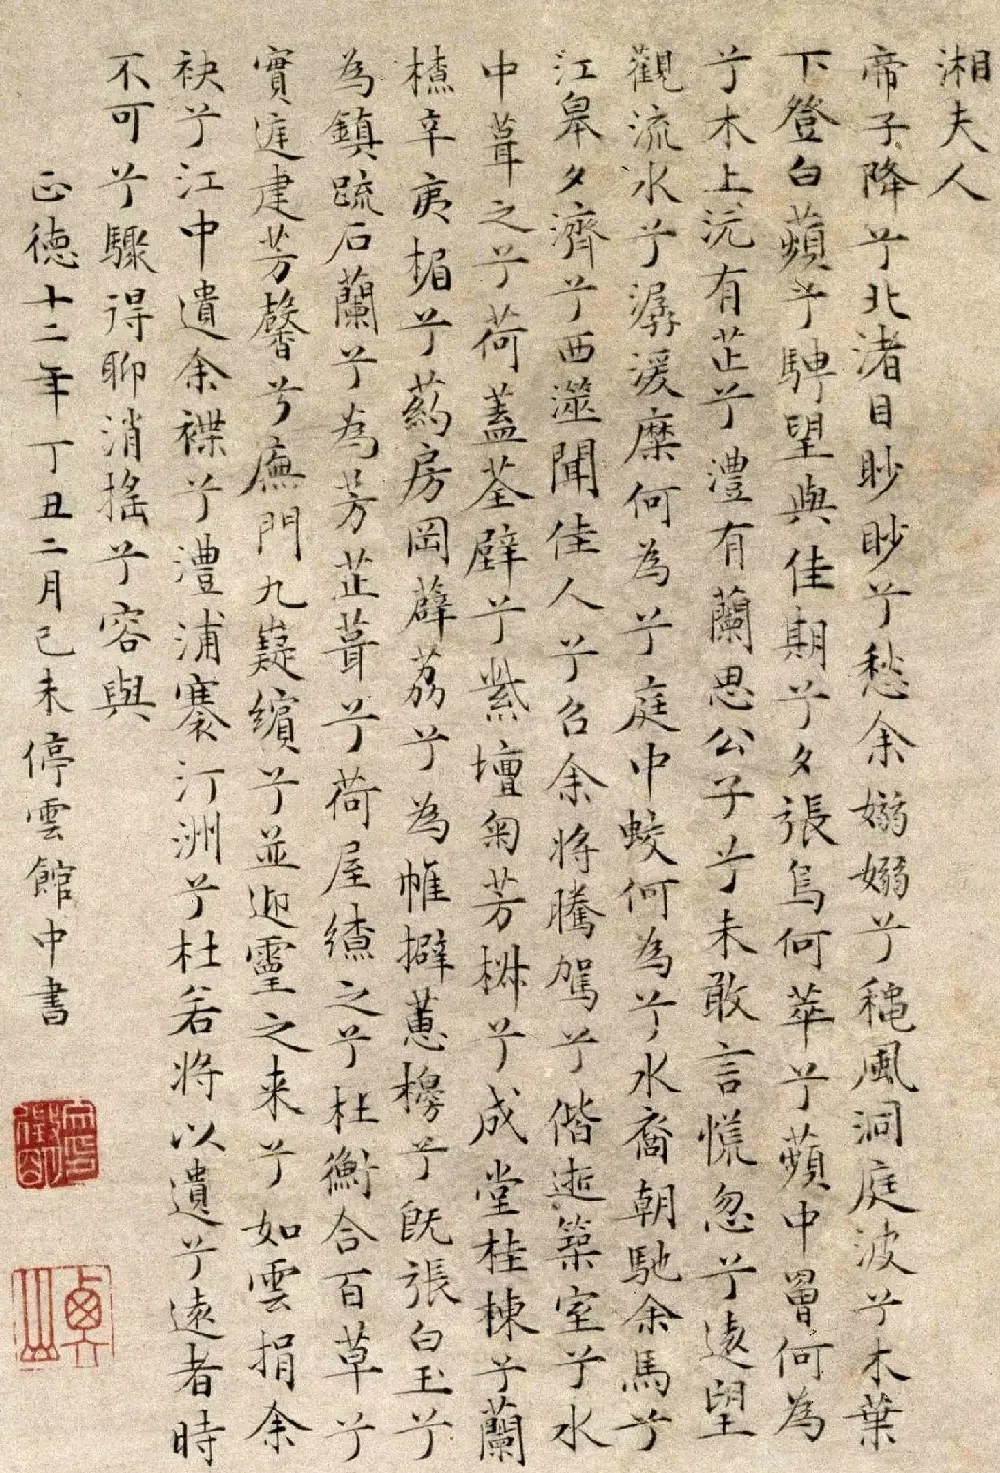 湘夫人
帝子降兮北渚目眇眇兮愁余嫋嫋兮穐風洞庭波兮木葉
下登白蘋兮騁望與佳期兮夕張鳥何萃兮蘋中罾何為
兮木上沅有芷兮澧有蘭思公子兮未敢言慌忽兮遠望
觀流水兮潺湲麋何為兮庭中蛟何為兮水裔朝馳余馬兮
江皋夕濟兮西澨聞佳人兮召余將騰駕兮偕逝築室兮水
中葺之兮荷蓋荃壁兮紫壇匊芳椒兮成堂桂棟兮蘭
橑辛夷楣兮葯房罔薜荔兮為帷擗蕙櫋兮既張白玉兮
為鎮疏石蘭兮為芳芷葺兮荷屋繚之兮杜衡合百草兮
實庭建芳馨兮廡門九嶷繽兮並迎靈之来兮如雲捐余
袂兮江中遺余褋兮澧浦搴汀洲兮杜若將以遺兮遠者時
不可兮驟得聊消搖兮容與
正德十二年丁丑二月己未停雲館中書